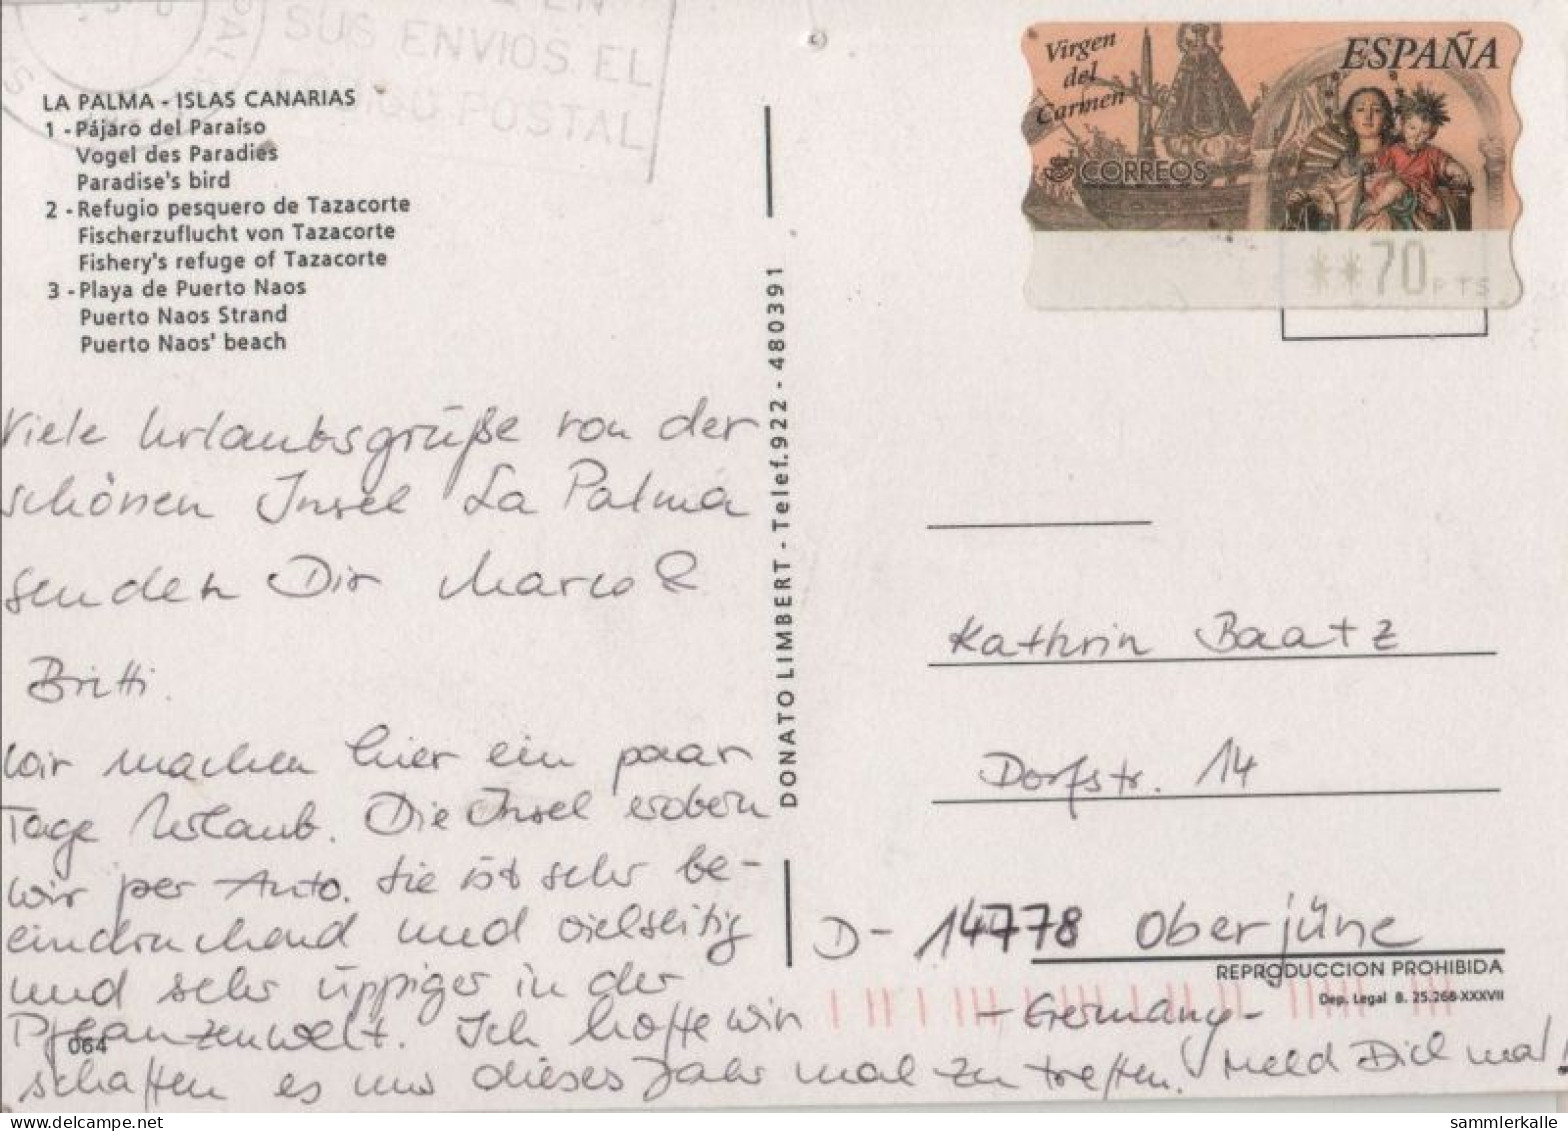 SUS ENVIOS EL
CODIGO POSTAL
LA PALMA - ISLAS CANARIAS
1 - Pájaro del Paraíso
Vogel des Paradies
Paradise's bird
2 - Refugio pesquero de Tazacorte
Fischerzuflucht von Tazacorte
Fishery's refuge of Tazacorte
3 - Playa de Puerto Naos
Puerto Naos Strand
Puerto Naos' beach
Viele Urlaubsgrüße von der
schönen Insel La Palma
senden Dir Marco &
Britti.
Wir machen hier ein paar
Tage Urlaub. Die Insel erobern
wir per Auto. Sie ist sehr be-
eindruckend und vielseitig
und sehr üppiger in der
Pflanzenwelt. Ich hoffe wir
schaffen es uns dieses Jahr mal zu treffen. Meld Dich mal!
064
DONATO LIMBERT - Telef. 922 - 480391
Virgen
del
Carmen
ESPAÑA
CORREOS
**70 PTS
Kathrin Baatz
Dorfstr. 14
D- 14778 Oberjüne
REPRODUCCION PROHIBIDA
Dep. Legal B. 25.266-XXXVII
- Germany -
sammlerkalle